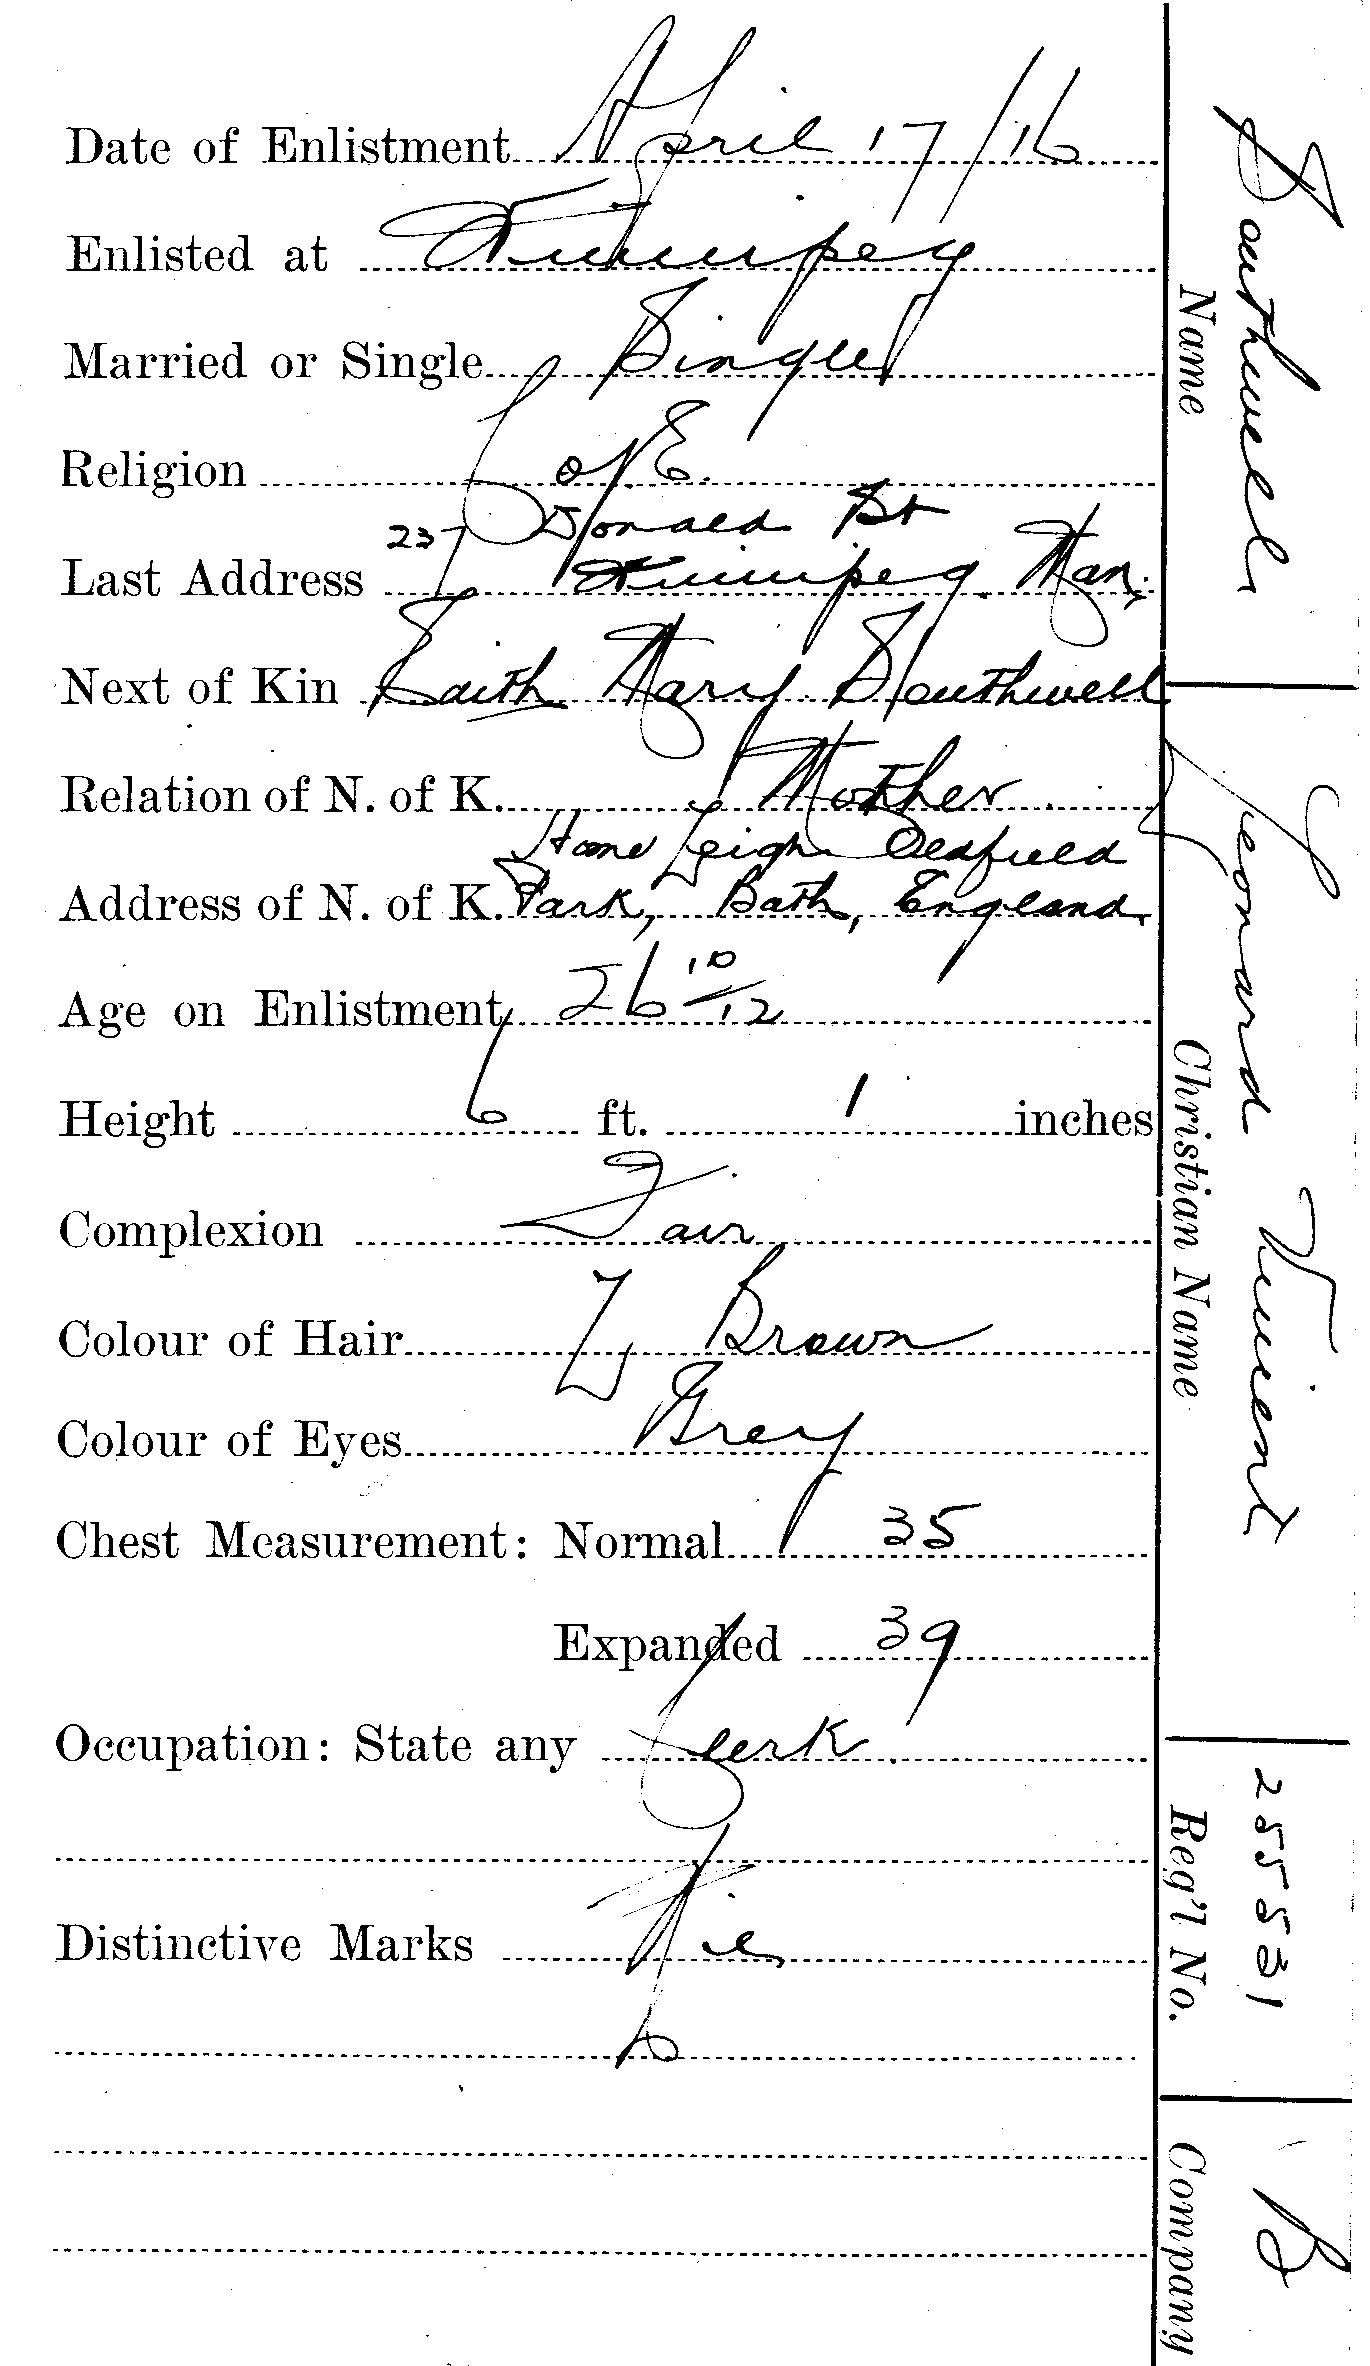 Date of Enlistment April 17/16
Enlisted at Winnipeg
Married or Single Single
Religion C of E.
237 Donald St
Last Address Winnipeg. Man.
Next of Kin Edith Mary Southwell
Relation of N. of K. Mother
Leigh Oldfield
Address of N. of K. Park, Bath, England.
Age on Enlistment 26 10/12
Height 6 ft. 1 inches
Complexion Fair
Colour of Hair Brown
Colour of Eyes Grey
Chest Measurement: Normal 35
Expanded 39
Occupation: State any Clerk.
Distinctive Marks Nil
Southwell
Name
Leonard Vincent
Christian Name
255531
Reg'l No.
B
Company